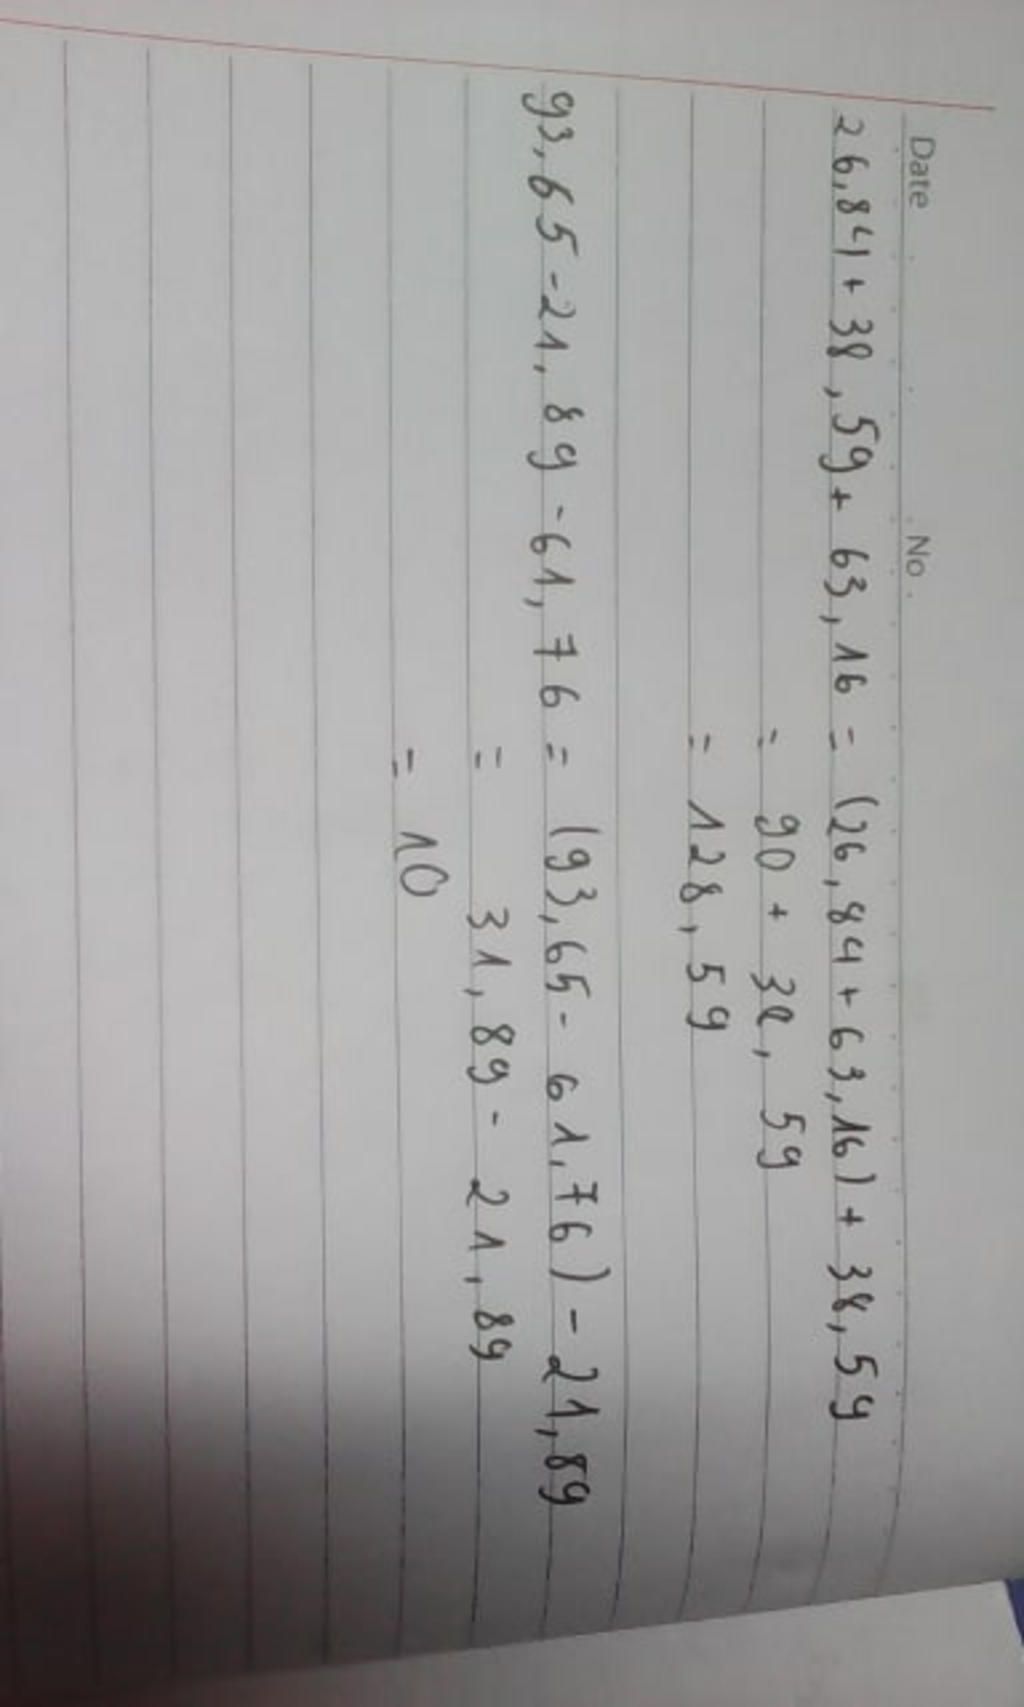 Date No.
26,84 + 38,59 + 63,16 = (26,84 + 63,16) + 38,59
= 90 + 38,59
= 128,59
93,65 - 21,89 - 61,76 = (93,65 - 61,76) - 21,89
= 31,89 - 21,89
= 10